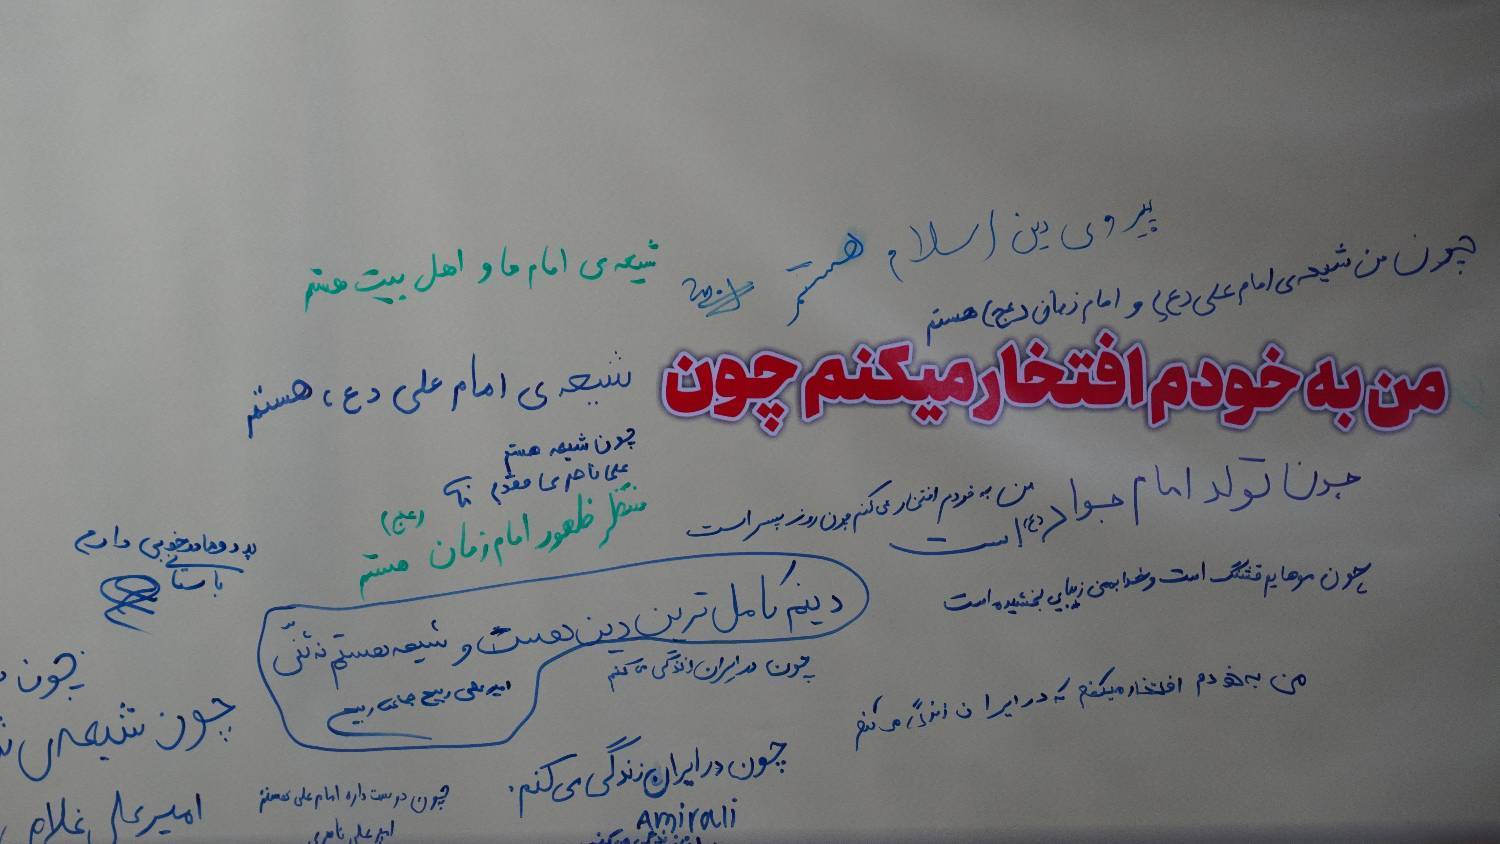 پیروی دین اسلام هستم
چون من شیعه ی امام علی (ع) و امام زمان (عج) هستم
شیعه ی امام ما و اهل بیت هستم
من به خودم افتخار میکنم چون
شیعه ی امام علی (ع) هستم
چون شیعه هستم
علی ناصری مقدم
منتظر ظهور امام زمان (عج) هستم
چون تولد امام جواد (ع) است
من به خودم افتخار می کنم چون روز پسر است
چون موهایم قشنگ است و خدا بمن زیبایی بخشیده است
خوبی دارم
دینم کامل ترین دین هست و شیعه هستم نه سنّی
امیرعلی ربیع
چون در ایران زندگی می کنم
من به خودم افتخار میکنم که در ایران زندگی می کنم
چون
چون شیعه ی
امیرعلی غلام
چون در ایران زندگی می کنم.
Amirali
چون دوست داره امام علی هستم
امیر علی ناصری